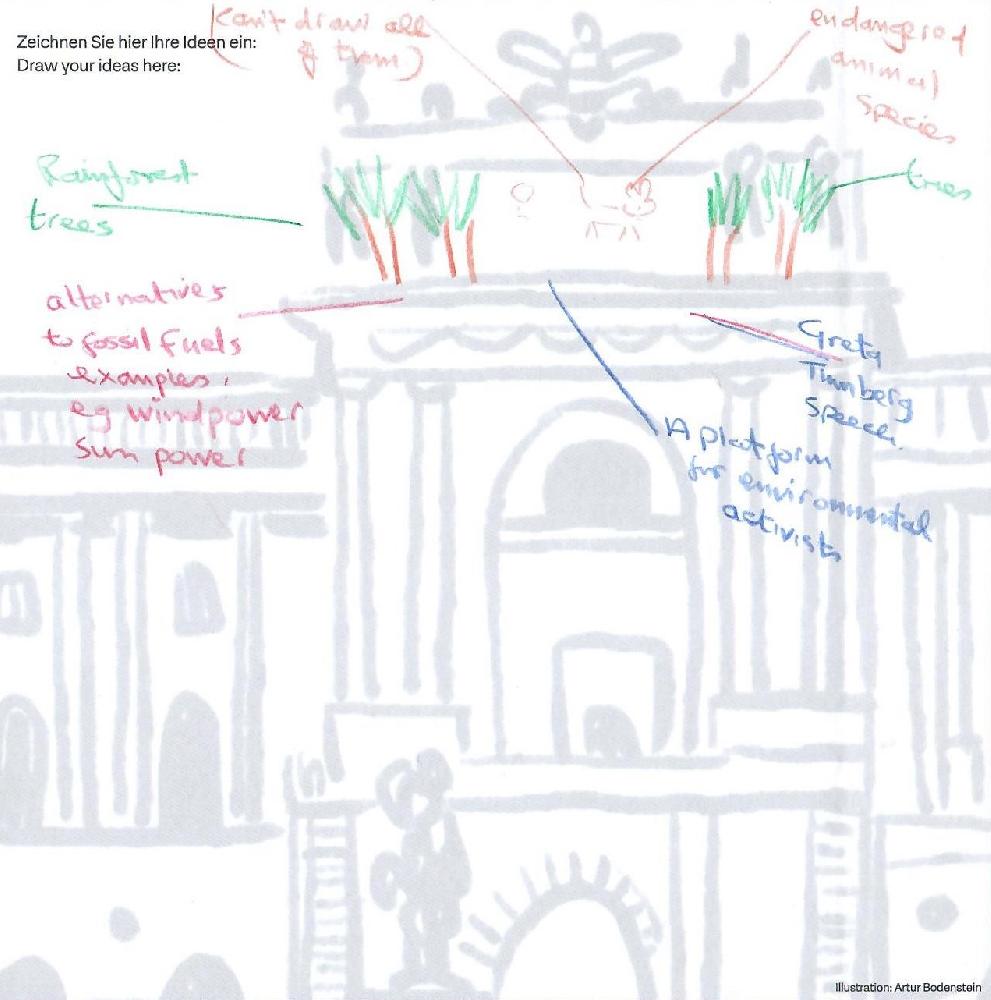 Zeichnen Sie hier Ihre Ideen ein:
Draw your ideas here:
(can't draw all
of them)
endangered
animal
species
Rainforest
trees
trees
alternatives
to fossil fuels
examples,
eg windpower
Sun power
Greta
Thunberg
Speech.
A platform
for environmental
activists
Illustration: Artur Bodenstein